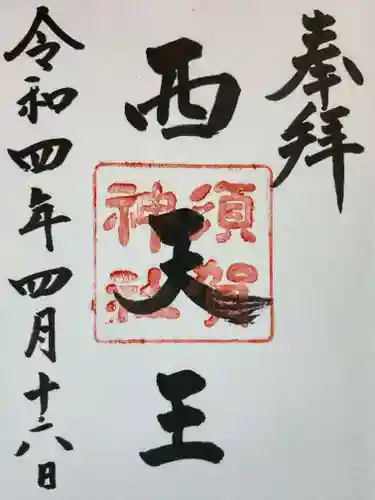 奉拝
西天王
須賀神社
令和四年四月十六日